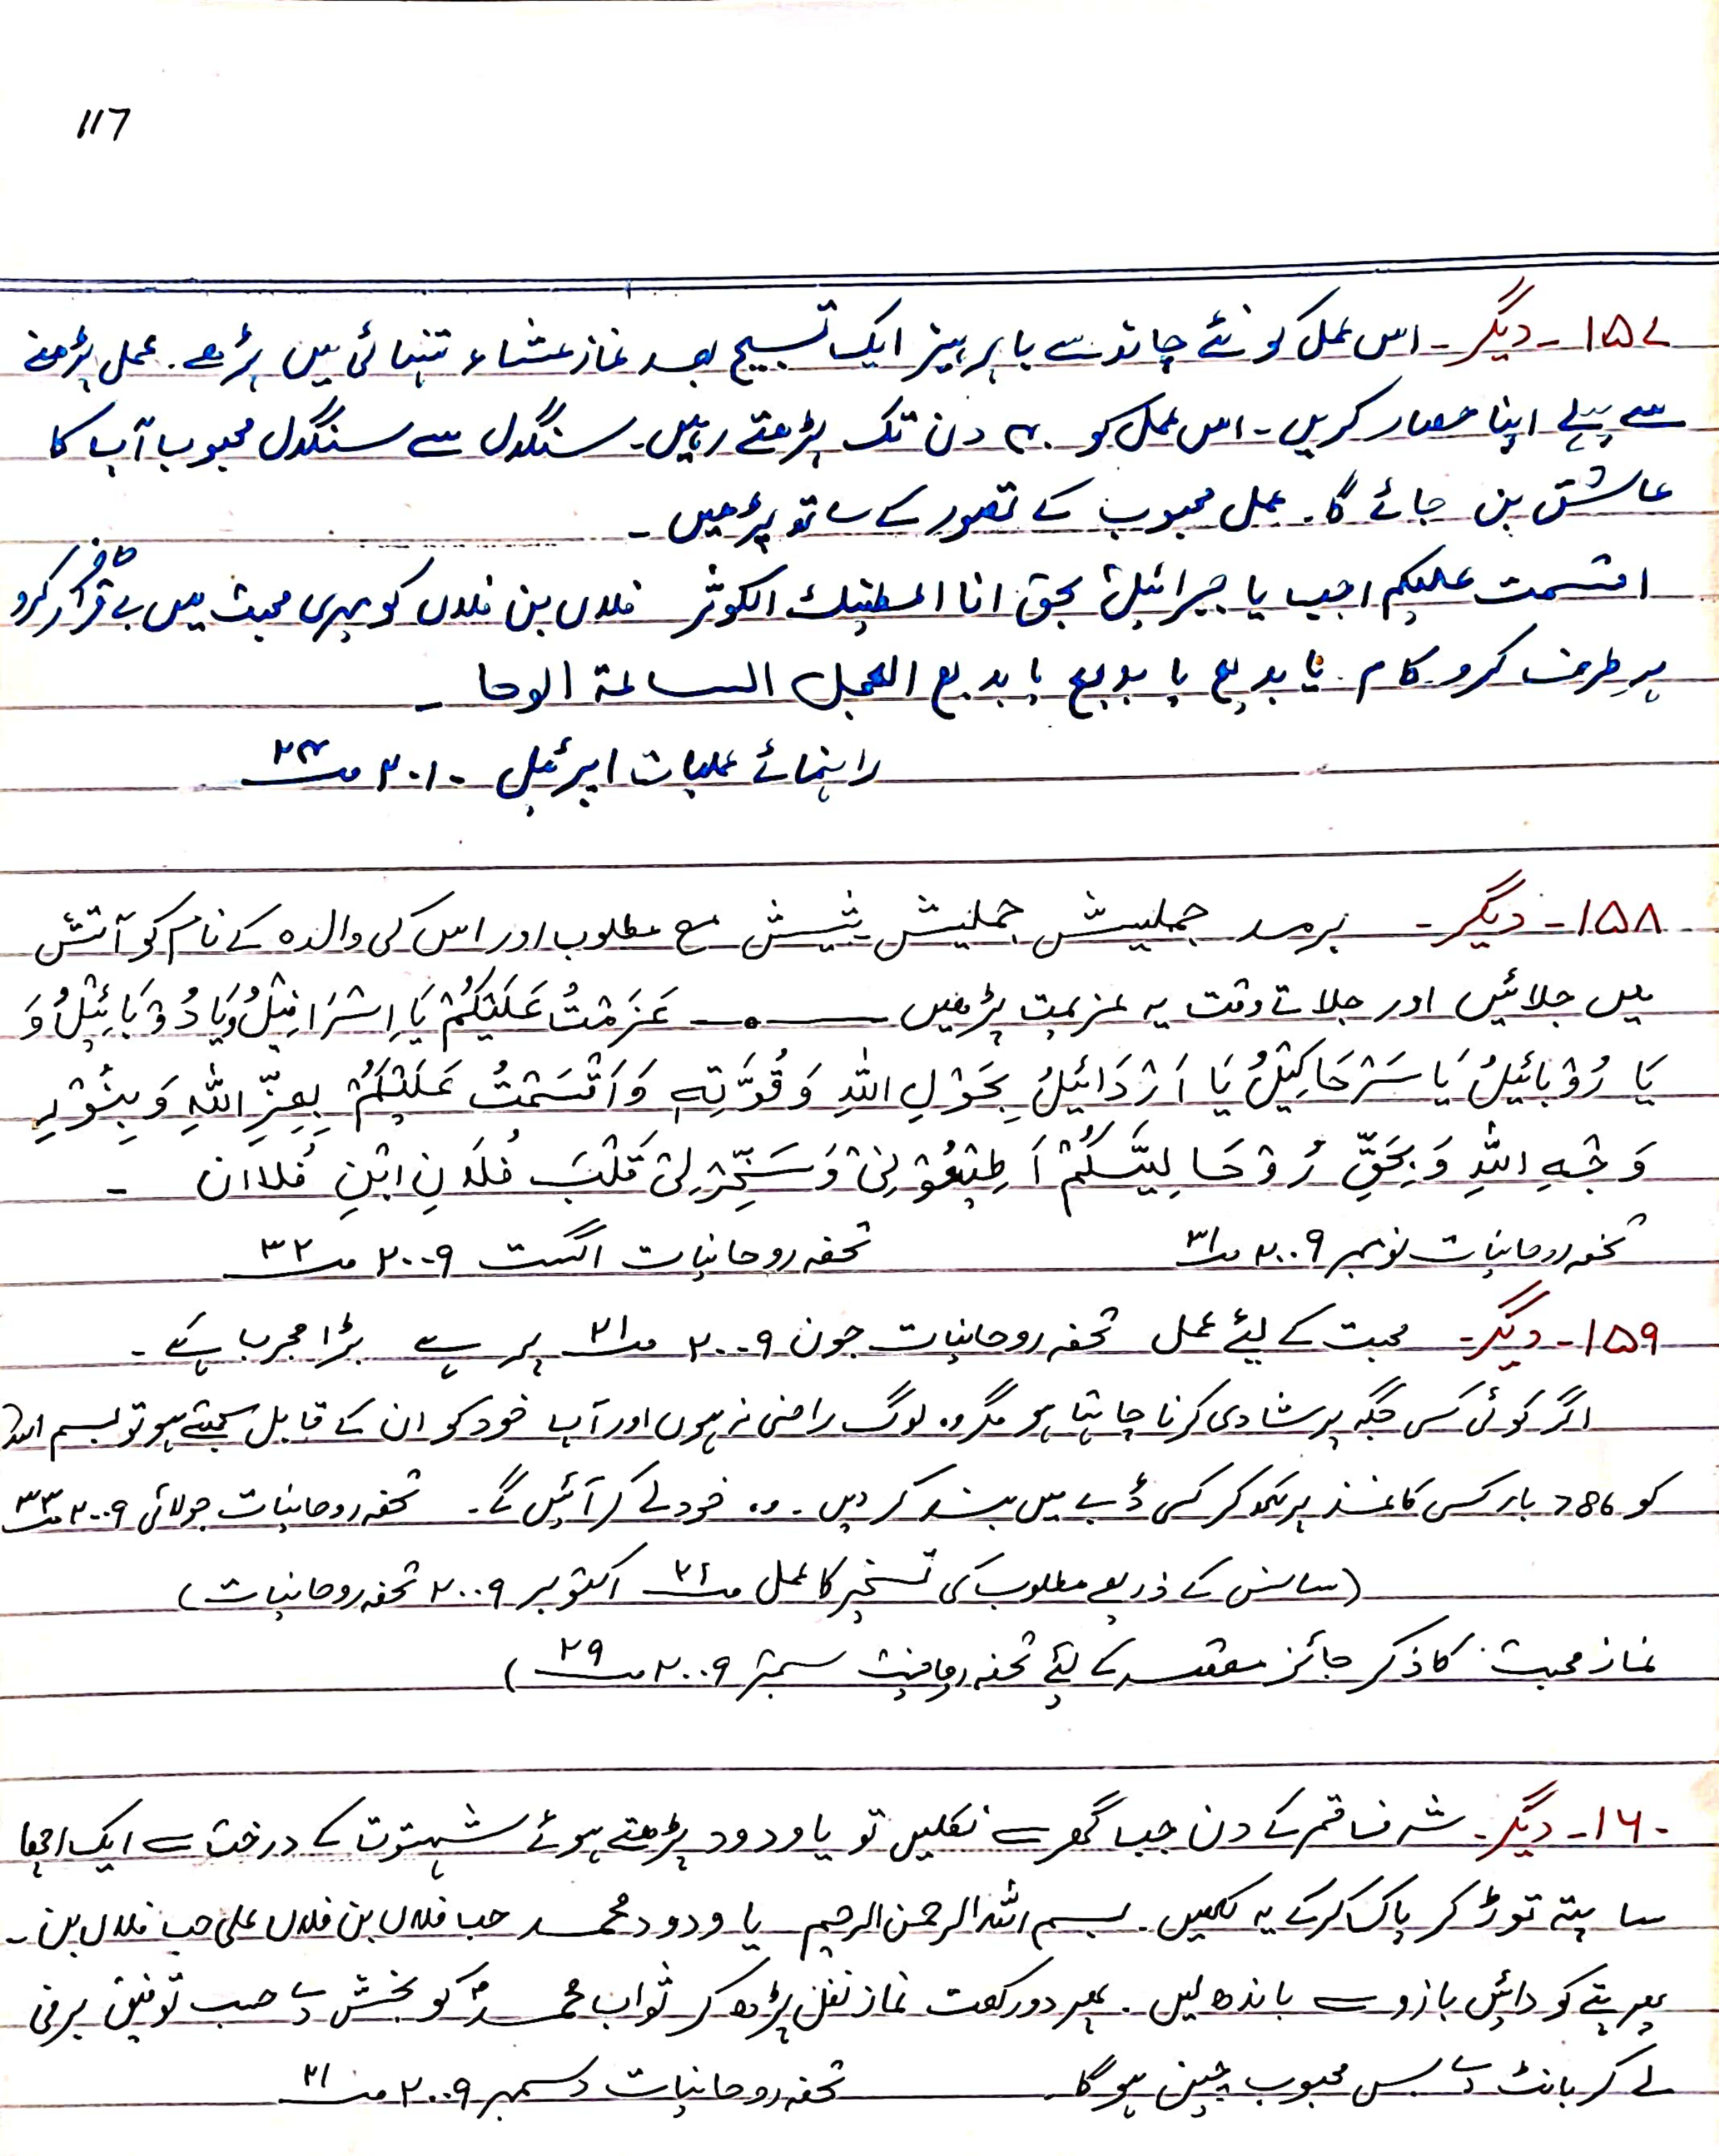 117
۱۵۷- دیگر- اس عمل کو نئے چاند سے باپرہیز ایک تسبیح بعد نماز عشاء تنہائی میں پڑھے۔ عمل پڑھنے
سے پہلے اپنا حصار کریں۔ اس عمل کو ۴۰ دن تک پڑھتے رہیں۔ سنگدل سے سنگدل محبوب آپ کا
عاشق بن جائے گا۔ عمل محبوب کے تصور کے ساتھ پڑھیں۔
اقسمت علیکم اجب یا جبرائیل بحق انا اعطینک الکوثر فلاں بن فلاں کو میری محبت میں بے قرار کرو
ہر طرف کرو کام۔ یا بدیع یا بدیع یا بدیع العجل الساعة الوحا۔
راہنمائے عملیات اپریل ۲۰۱۰ صـ ۲۴
۱۵۸- دیگر- برصد جملیش جملیش شیش مع مطلوب اور اس کی والدہ کے نام کو آتش
میں جلائیں اور جلاتے وقت یہ عزیمت پڑھیں ــــ عَزَمْتُ عَلَيْكُمْ يَا اِسْرَافِيْلُ وَيَا دُوْيَائِيْلُ وَ
يَا رُوْبَائِيْلُ يَا سَرْحَاكِيْلُ يَا اَرْدَائِيْلُ بِحَوْلِ اللّٰهِ وَقُوَّتِهٖ وَاَقْسَمْتُ عَلَيْكُمْ بِعِزِّ اللّٰهِ وَبِنُوْرِ
وَجْهِ اللّٰهِ وَبِحَقِّ رُوْحَالِيَّكُمْ اَطِيْعُوْنِیْ وَسَخِّرْلِیْ قَلْبَ فُلَانِ ابْنِ فُلاان ۔
تحفہ روحانیات نومبر ۲۰۰۹ صـ ۳۱ تحفہ روحانیات اگست ۲۰۰۹ صـ ۳۲
۱۵۹- دیگر- محبت کے لیئے عمل تحفہ روحانیات جون ۲۰۰۹ صـ ۲۱ پر ہے بڑا مجرب ہے۔
اگر کوئی کسی جگہ پر شادی کرنا چاہتا ہو مگر وہ لوگ راضی نہ ہوں اور آپ خود کو ان کے قابل سمجھتے ہو تو بسم اللہ
کو 786 بار کسی کاغذ پر لکھ کر کسی ڈبے میں بند کر دیں۔ وہ خود لے کر آئیں گے۔ تحفہ روحانیات جولائی ۲۰۰۹ صـ ۳۳
(سانس کے ذریعے مطلوب کی تسخیر کا عمل صـ ۲۶ اکتوبر ۲۰۰۹ تحفہ روحانیات)
نماز محبت کا ذکر جائز مقصد کے لیئے تحفہ روحانیت ستمبر ۲۰۰۹ صـ ۲۹)
۱۶۰- دیگر- شرف قمر کے دن جب گھر سے نکلیں تو یا ودود پڑھتے ہوئے شہتوت کے درخت سے ایک اچھا
سا پتہ توڑ کر پاک کرکے یہ لکھیں۔ بسم اللہ الرحمن الرحیم یا ودود محمد حب فلاں بن فلاں علی حب فلاں بن۔
پھر پتے کو دائیں بازو سے باندھ لیں۔ پھر دو رکعت نماز نفل پڑھ کر ثواب محمدؐ کو بخش دے حسب توفیق برفی
لے کر بانٹ دے بس محبوب ہوگا۔ تحفہ روحانیات دسمبر ۲۰۰۹ صـ ۲۱